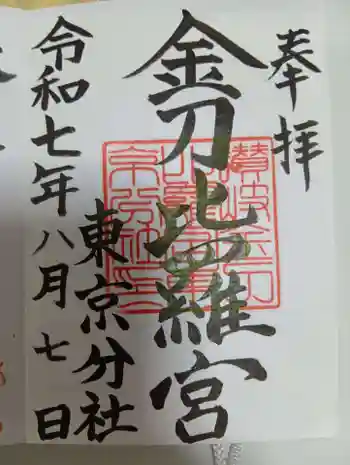 奉拝
金刀比羅宮
東京分社
令和七年八月七日